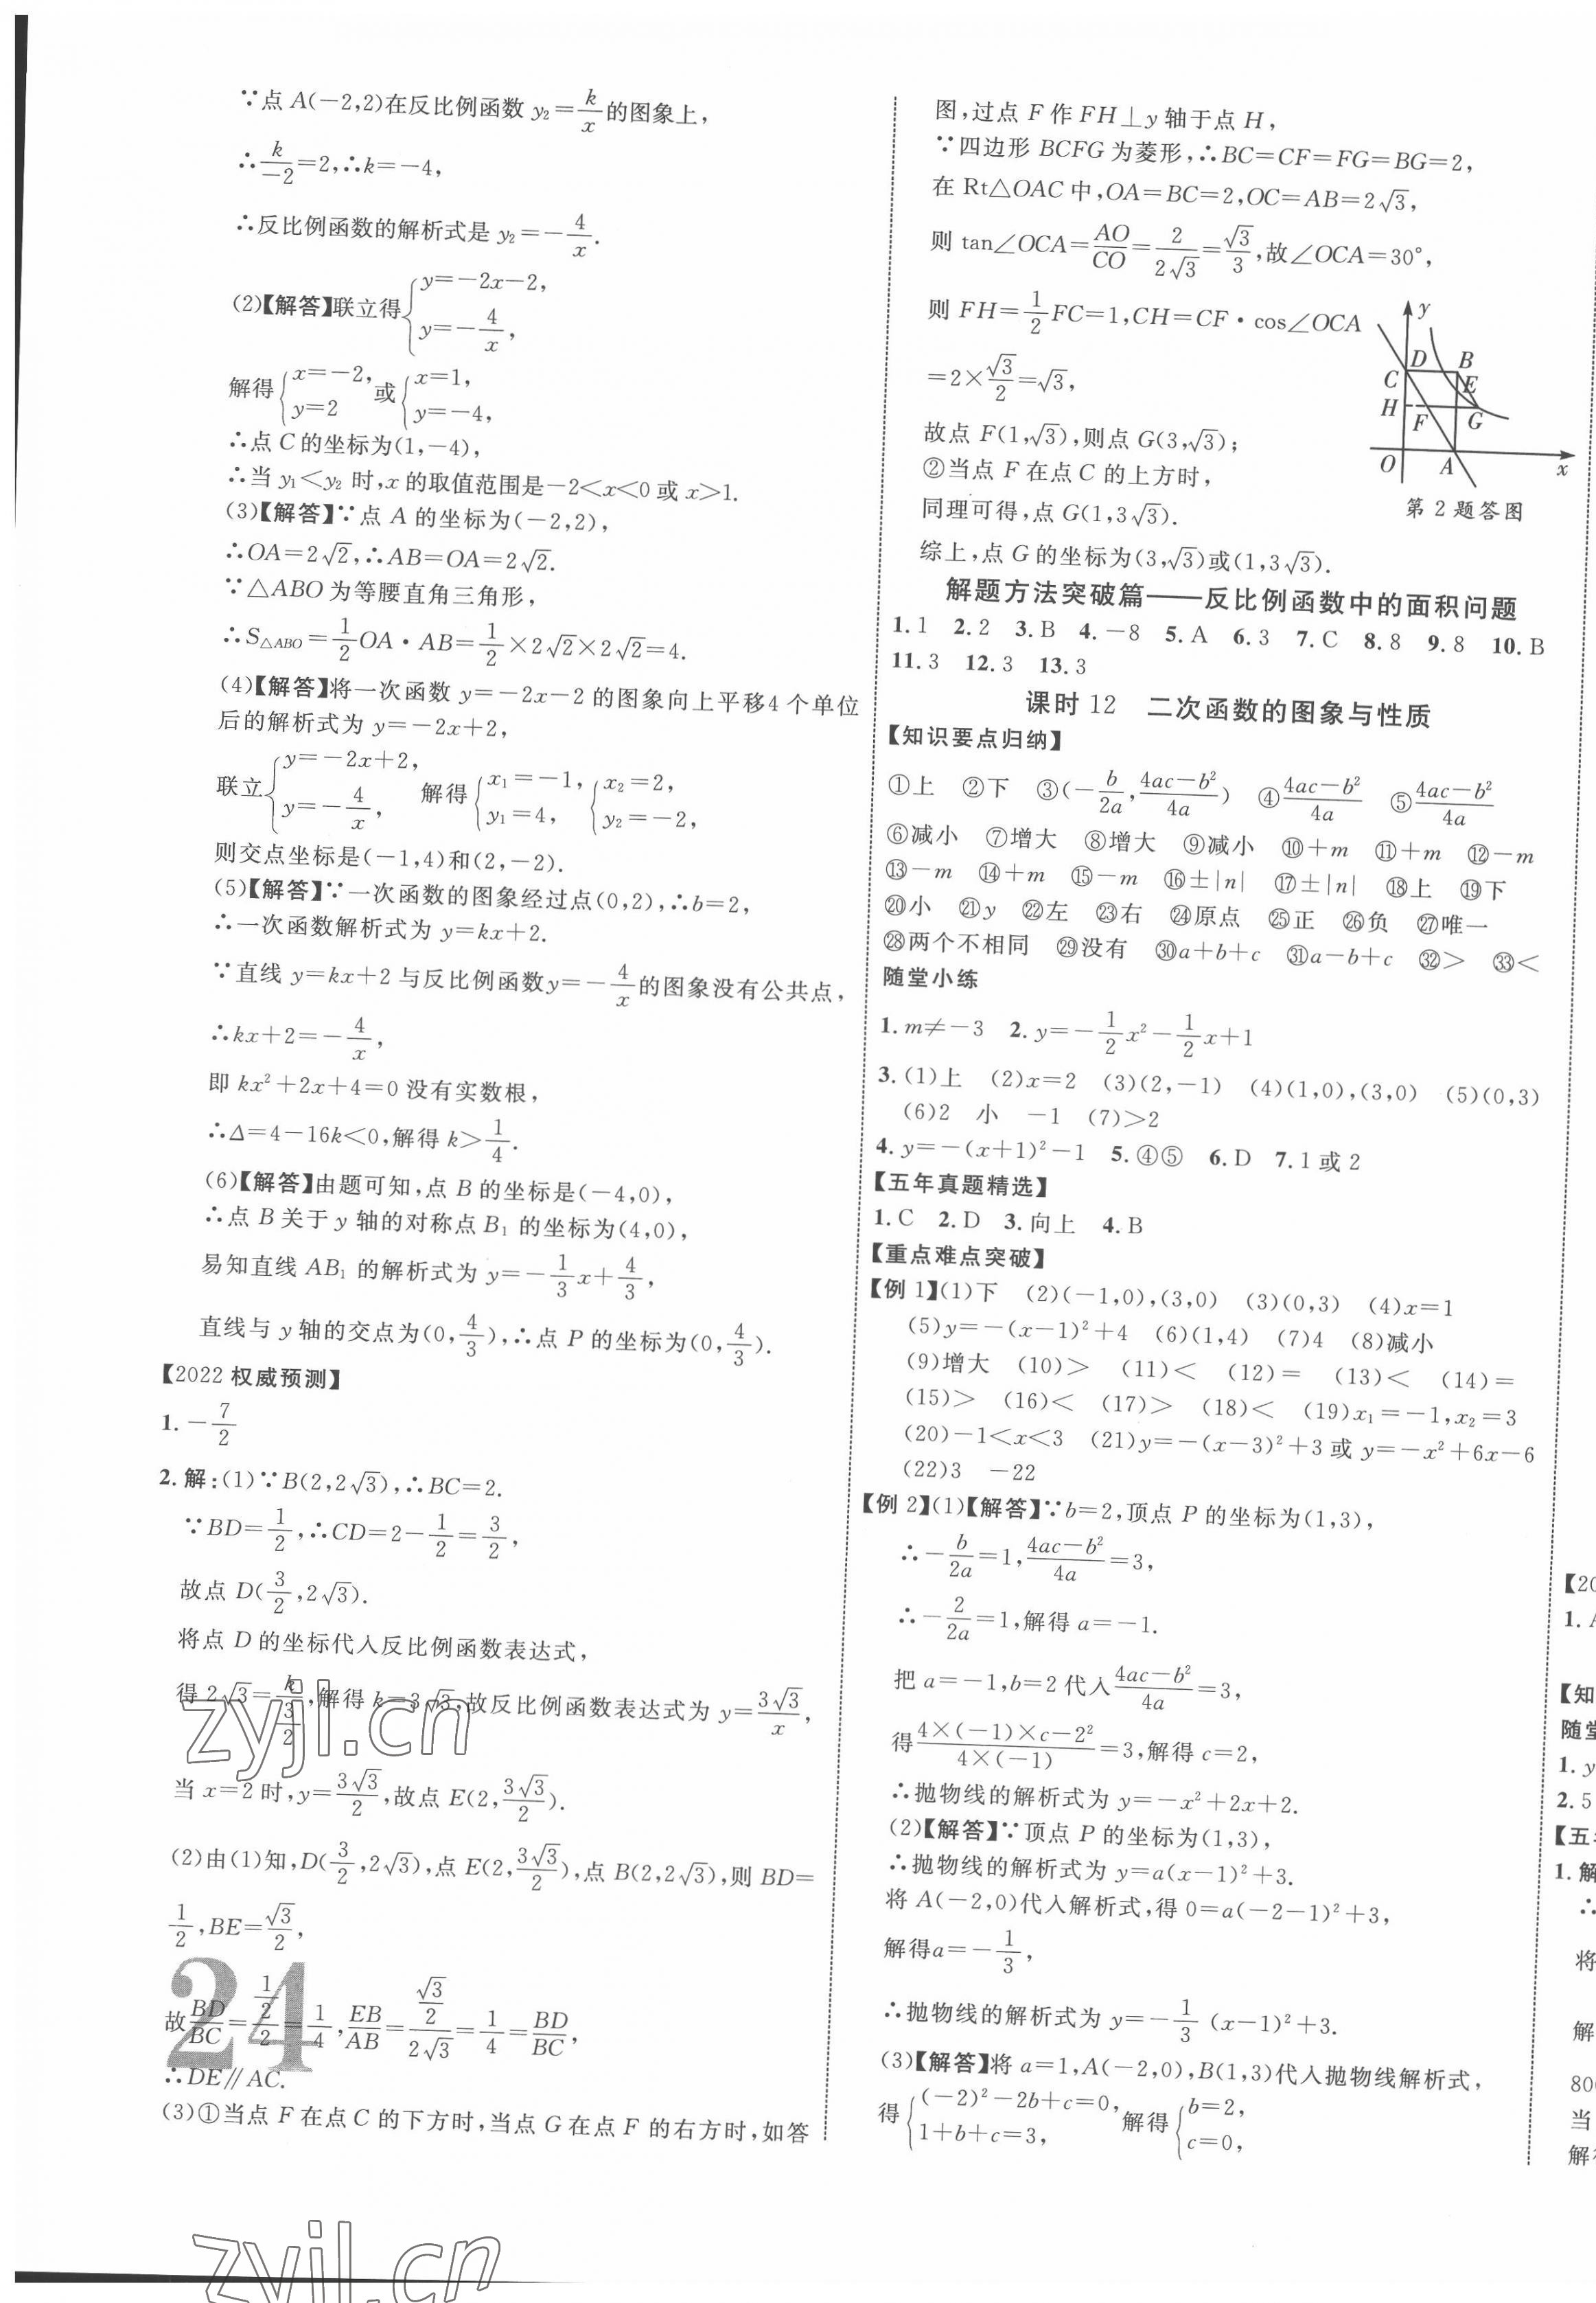 ∵点 A(−2,2)在反比例函数 y₂=k/x的图象上,
∴k/−2=2,∴k=−4,
∴反比例函数的解析式是 y₂=−4/x.
(2)【解答】联立得{y=−2x−2, y=−4/x,
解得{x=−2, y=2 或{x=1, y=−4,
∴点 C 的坐标为(1,−4),
∴当 y₁<y₂ 时,x 的取值范围是−2<x<0 或 x>1.
(3)【解答】∵点 A 的坐标为(−2,2),
∴OA=2√2,∴AB=OA=2√2.
∵△ABO 为等腰直角三角形,
∴S△ABO=1/2OA·AB=1/2×2√2×2√2=4.
(4)【解答】将一次函数 y=−2x−2 的图象向上平移4 个单位
后的解析式为 y=−2x+2,
联立{y=−2x+2, y=−4/x, 解得{x₁=−1, y₁=4, {x₂=2, y₂=−2,
则交点坐标是(−1,4)和(2,−2).
(5)【解答】∵一次函数的图象经过点(0,2),∴b=2,
∴一次函数解析式为 y=kx+2.
∵直线 y=kx+2 与反比例函数y=−4/x的图象没有公共点,
∴kx+2=−4/x,
即 kx²+2x+4=0 没有实数根,
∴Δ=4−16k<0,解得 k>1/4.
(6)【解答】由题可知,点 B 的坐标是(−4,0),
∴点 B 关于 y 轴的对称点 B₁ 的坐标为(4,0),
易知直线 AB₁ 的解析式为 y=−1/3x+4/3,
直线与 y 轴的交点为(0,4/3),∴点 P 的坐标为(0,4/3).
【2022 权威预测】
1. −7/2
2. 解:(1)∵B(2,2√3),∴BC=2.
∵BD=1/2,∴CD=2−1/2=3/2,
故点 D(3/2,2√3).
将点 D 的坐标代入反比例函数表达式,
得 2√3=k/(3/2),解得 k=3√3,故反比例函数表达式为 y=3√3/x,
当 x=2 时,y=3√3/2,故点 E(2,3√3/2).
(2)由(1)知,D(3/2,2√3),点 E(2,3√3/2),点 B(2,2√3),则 BD=
1/2,BE=√3/2,
故BD/BC=(1/2)/2=1/4,EB/AB=(√3/2)/(2√3)=1/4=BD/BC,
∴DE∥AC.
(3)①当点 F 在点 C 的下方时,当点 G 在点 F 的右方时,如答
24
zyjl.cn
zyjl.cn
图,过点 F 作 FH⊥y 轴于点 H,
∵四边形 BCFG 为菱形,∴BC=CF=FG=BG=2,
在 Rt△OAC 中,OA=BC=2,OC=AB=2√3,
则 tan∠OCA=AO/CO=2/(2√3)=√3/3,故∠OCA=30°,
则 FH=1/2FC=1,CH=CF·cos∠OCA
=2×√3/2=√3,
故点 F(1,√3),则点 G(3,√3);
②当点 F 在点 C 的上方时,
同理可得,点 G(1,3√3).
y
D B
C E
H F G
O A x
第 2 题答图
综上,点 G 的坐标为(3,√3)或(1,3√3).
解题方法突破篇——反比例函数中的面积问题
1. 1 2. 2 3. B 4. −8 5. A 6. 3 7. C 8. 8 9. 8 10. B
11. 3 12. 3 13. 3
课时 12 二次函数的图象与性质
【知识要点归纳】
①上 ②下 ③(−b/2a,(4ac−b²)/4a) ④(4ac−b²)/4a ⑤(4ac−b²)/4a
⑥减小 ⑦增大 ⑧增大 ⑨减小 ⑩+m ⑪+m ⑫−m
⑬−m ⑭+m ⑮−m ⑯±|n| ⑰±|n| ⑱上 ⑲下
⑳小 ㉑y ㉒左 ㉓右 ㉔原点 ㉕正 ㉖负 ㉗唯一
㉘两个不相同 ㉙没有 ㉚a+b+c ㉛a−b+c ㉜> ㉝<
随堂小练
1. m≠−3 2. y=−1/2x²−1/2x+1
3. (1)上 (2)x=2 (3)(2,−1) (4)(1,0),(3,0) (5)(0,3)
(6)2 小 −1 (7)>2
4. y=−(x+1)²−1 5. ④⑤ 6. D 7. 1 或 2
【五年真题精选】
1. C 2. D 3. 向上 4. B
【重点难点突破】
【例 1】(1)下 (2)(−1,0),(3,0) (3)(0,3) (4)x=1
(5)y=−(x−1)²+4 (6)(1,4) (7)4 (8)减小
(9)增大 (10)> (11)< (12)= (13)< (14)=
(15)> (16)< (17)> (18)< (19)x₁=−1,x₂=3
(20)−1<x<3 (21)y=−(x−3)²+3 或 y=−x²+6x−6
(22)3 −22
【例 2】(1)【解答】∵b=2,顶点 P 的坐标为(1,3),
∴−b/2a=1,(4ac−b²)/4a=3,
∴−2/2a=1,解得 a=−1.
把 a=−1,b=2 代入(4ac−b²)/4a=3,
得(4×(−1)×c−2²)/(4×(−1))=3,解得 c=2,
∴抛物线的解析式为 y=−x²+2x+2.
(2)【解答】∵顶点 P 的坐标为(1,3),
∴抛物线的解析式为 y=a(x−1)²+3.
将 A(−2,0)代入解析式,得 0=a(−2−1)²+3,
解得a=−1/3,
∴抛物线的解析式为 y=−1/3(x−1)²+3.
(3)【解答】将 a=1,A(−2,0),B(1,3)代入抛物线解析式,
得{(−2)²−2b+c=0, 1+b+c=3, 解得{b=2, c=0,
【20
1.
【知
随堂
1. y
2. 5
【五
1. 解
∴
将
解
80
当
解